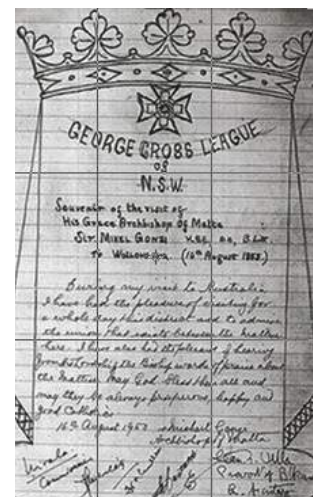 GEORGE CROSS LEAGUE
of
N.S.W.
Souvenir of the visit of
His Grace Archbishop of Malta
Sir Mikel Gonzi K.B.E. DD, B.Litt.
To Wollongong. (16th August 1953.)
During my visit to Australia
I have had the pleasure of visiting for
a whole day this district and to admire
the union that exists between the Maltese
here. I have also had the pleasure of hearing
from His Lordship the Bishop words of praise about
the Maltese. May God bless them all and
may they be always prosperous, happy and
good Catholics
16th August 1953 Michael Gonzi
Archbishop of Malta